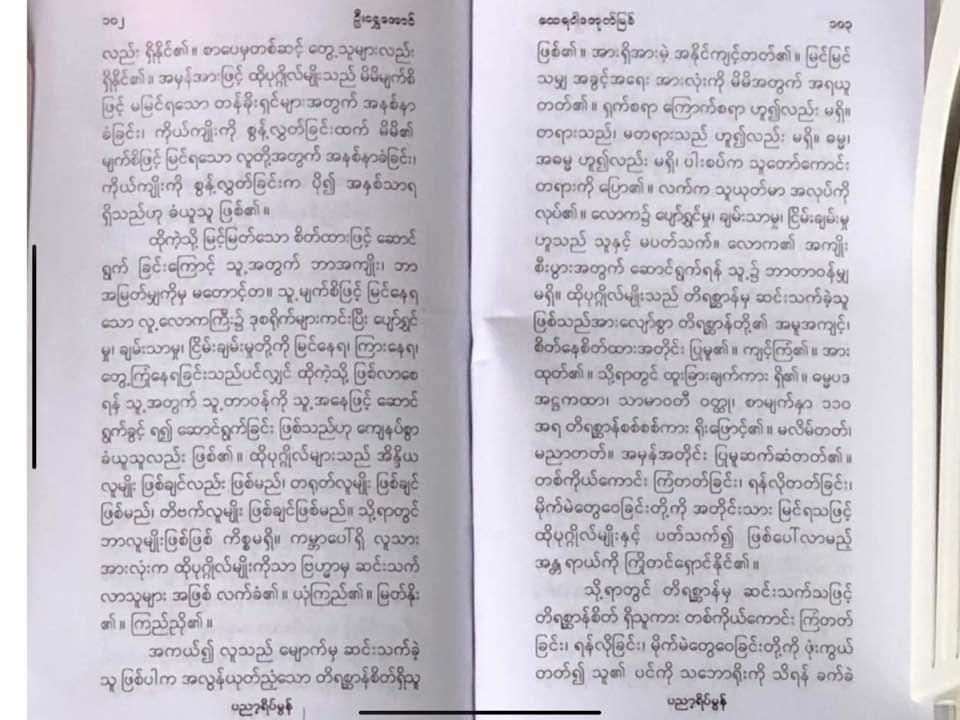 ၁၀၂
ဦးရွှေအောင်
လည်း ရှိနိုင်၏။ စာပေမှတစ်ဆင့် တွေ့သူများလည်း
ရှိနိုင်၏။ အမှန်အားဖြင့် ထိုပုဂ္ဂိုလ်မျိုးသည် မိမိမျက်စိ
ဖြင့် မမြင်ရသော တန်ခိုးရှင်များအတွက် အနစ်နာ
ခံခြင်း၊ ကိုယ်ကျိုးကို စွန့်လွှတ်ခြင်းထက် မိမိ၏
မျက်စိဖြင့် မြင်ရသော လူတို့အတွက် အနစ်နာခံခြင်း၊
ကိုယ်ကျိုးကို စွန့်လွှတ်ခြင်းက ပို၍ အနှစ်သာရ
ရှိသည်ဟု ခံယူသူ ဖြစ်၏။
ထိုကဲ့သို့ မြင့်မြတ်သော စိတ်ထားဖြင့် ဆောင်
ရွက် ခြင်းကြောင့် သူ့အတွက် ဘာအကျိုး၊ ဘာ
အမြတ်မျှကိုမှ မတောင့်တ။ သူ့မျက်စိဖြင့် မြင်နေရ
သော လူ့လောကကြီး၌ ဒုစရိုက်များကင်းပြီး ပျော်ရွှင်
မှု၊ ချမ်းသာမှု၊ ငြိမ်းချမ်းမှုတို့ကို မြင်နေရ၊ ကြားနေရ၊
တွေ့ကြုံနေရခြင်းသည်ပင်လျှင် ထိုကဲ့သို့ ဖြစ်လာစေ
ရန် သူ့အတွက် သူ့တာဝန်ကို သူ့အနေဖြင့် ဆောင်
ရွက်ခွင့် ရ၍ ဆောင်ရွက်ခြင်း ဖြစ်သည်ဟု ကျေနပ်စွာ
ခံယူသူလည်း ဖြစ်၏။ ထိုပုဂ္ဂိုလ်များသည် အိန္ဒိယ
လူမျိုး ဖြစ်ချင်လည်း ဖြစ်မည်၊ တရုတ်လူမျိုး ဖြစ်ချင်
ဖြစ်မည်၊ တိဗက်လူမျိုး ဖြစ်ချင်ဖြစ်မည်။ သို့ရာတွင်
ဘာလူမျိုးဖြစ်ဖြစ် ကိစ္စမရှိ။ ကမ္ဘာပေါ်ရှိ လူသား
အားလုံးက ထိုပုဂ္ဂိုလ်မျိုးကိုသာ ဗြဟ္မာမှ ဆင်းသက်
လာသူများ အဖြစ် လက်ခံ၏။ ယုံကြည်၏။ မြတ်နိုး
၏။ ကြည်ညို၏။
အကယ်၍ လူသည် မျောက်မှ ဆင်းသက်ခဲ့
သူ ဖြစ်ပါက အလွန်ယုတ်ညံ့သော တိရစ္ဆာန်စိတ်ရှိသူ
ပညာ့ရိပ်မွန်
ထေရဝါဒအုတ်မြစ်
၁၀၃
ဖြစ်၏။ အားရှိအားမဲ့ အနိုင်ကျင့်တတ်၏။ မြင်မြင်
သမျှ အခွင့်အရေး အားလုံးကို မိမိအတွက် အရယူ
တတ်၏။ ရှက်စရာ ကြောက်စရာ ဟူ၍လည်း မရှိ။
တရားသည်၊ မတရားသည် ဟူ၍လည်း မရှိ။ ဓမ္မ၊
အဓမ္မ ဟူ၍လည်း မရှိ၊ ပါးစပ်က သူတော်ကောင်း
တရားကို ပြော၏။ လက်က သူယုတ်မာ အလုပ်ကို
လုပ်၏။ လောက၌ ပျော်ရွှင်မှု၊ ချမ်းသာမှု၊ ငြိမ်းချမ်းမှု
ဟူသည် သူနှင့် မပတ်သက်။ လောက၏ အကျိုး
စီးပွားအတွက် ဆောင်ရွက်ရန် သူ့၌ ဘာတာဝန်မျှ
မရှိ။ ထိုပုဂ္ဂိုလ်မျိုးသည် တိရစ္ဆာန်မှ ဆင်းသက်ခဲ့သူ
ဖြစ်သည်အားလျော်စွာ တိရစ္ဆာန်တို့၏ အမူအကျင့်၊
စိတ်နေစိတ်ထားအတိုင်း ပြုမူ၏။ ကျင့်ကြံ၏။ အား
ထုတ်၏။ သို့ရာတွင် ထူးခြားချက်ကား ရှိ၏။ ဓမ္မပဒ
အဋ္ဌကထာ၊ သာမာဝတီ ဝတ္ထု၊ စာမျက်နှာ ၁၁၀
အရ တိရစ္ဆာန်စစ်စစ်ကား ရိုးဖြောင့်၏။ မလိမ်တတ်၊
မညာတတ်။ အမှန်အတိုင်း ပြုမူဆက်ဆံတတ်၏။
တစ်ကိုယ်ကောင်း ကြံတတ်ခြင်း၊ ရန်လိုတတ်ခြင်း၊
မိုက်မဲတွေဝေခြင်းတို့ကို အတိုင်းသား မြင်ရသဖြင့်
ထိုပုဂ္ဂိုလ်မျိုးနှင့် ပတ်သက်၍ ဖြစ်ပေါ်လာမည့်
အန္တရာယ်ကို ကြိုတင်ရှောင်နိုင်၏။
သို့ရာတွင် တိရစ္ဆာန်မှ ဆင်းသက်သဖြင့်
တိရစ္ဆာန်စိတ် ရှိသူကား တစ်ကိုယ်ကောင်း ကြံတတ်
ခြင်း၊ ရန်လိုခြင်း၊ မိုက်မဲတွေဝေခြင်းတို့ကို ဖုံးကွယ်
တတ်၍ သူ၏ ပင်ကို သဘောရိုးကို သိရန် ခက်ခဲ
ပညာ့ရိပ်မွန်